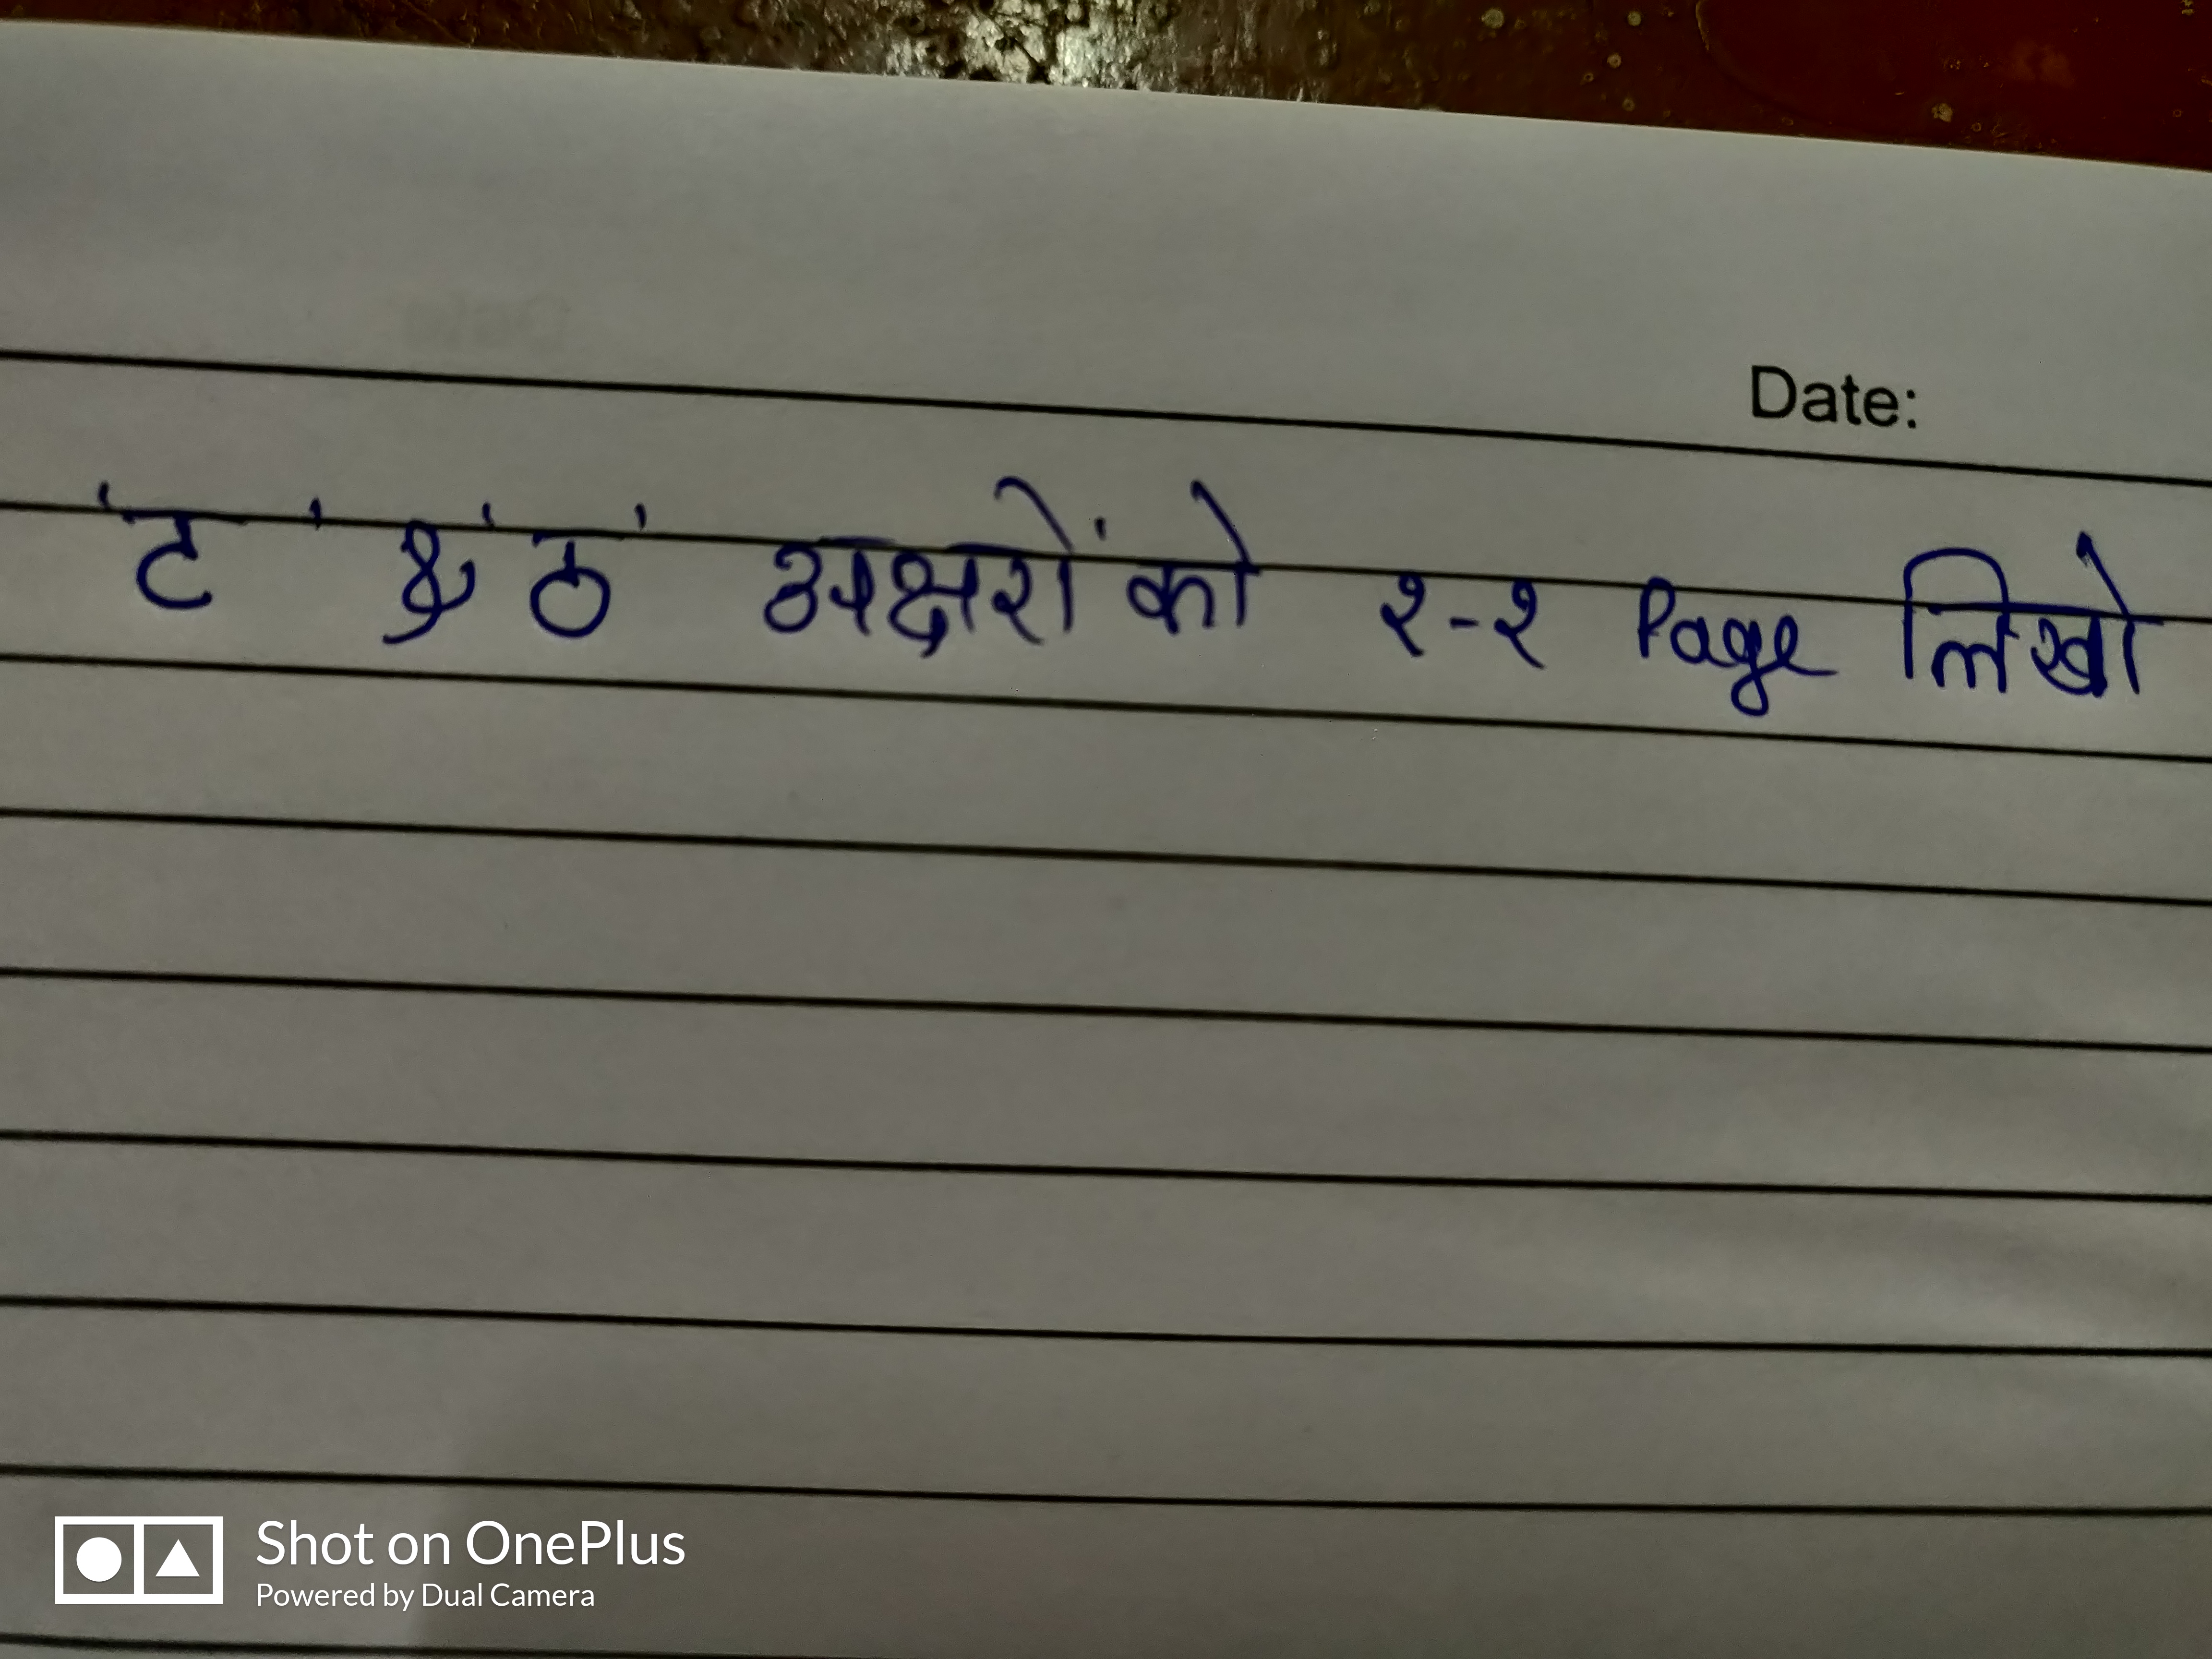 Date:
'ट' & 'ठ' अक्षरों को २-२ Page लिखो
Shot on OnePlus
Powered by Dual Camera